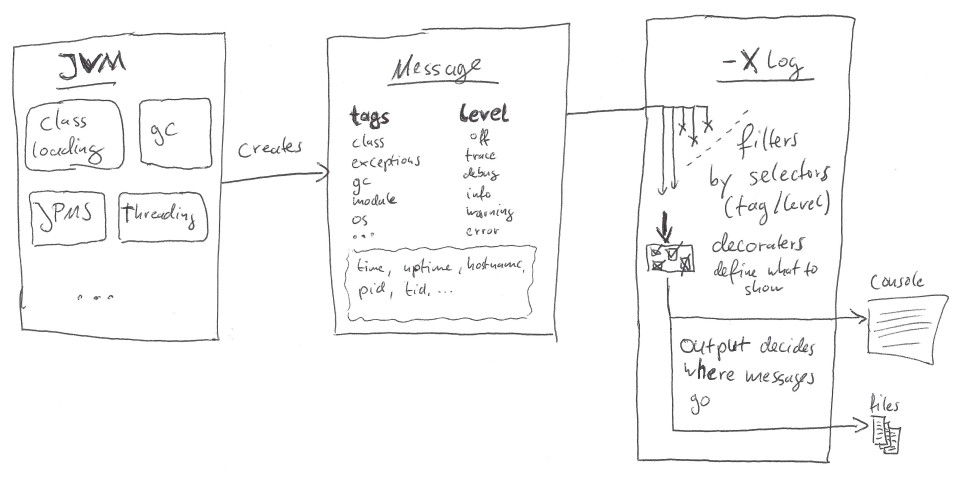 JVM
class
loading
gc
JPMS
threading
...
creates
Message
tags
class
exceptions
gc
module
os
...
Level
off
trace
debug
info
warning
error
time, uptime, hostname,
pid, tid, ...
-X Log
filters
by selectors
(tag/level)
decoraters
define what to
show
Output decides
where messages
go
Console
files